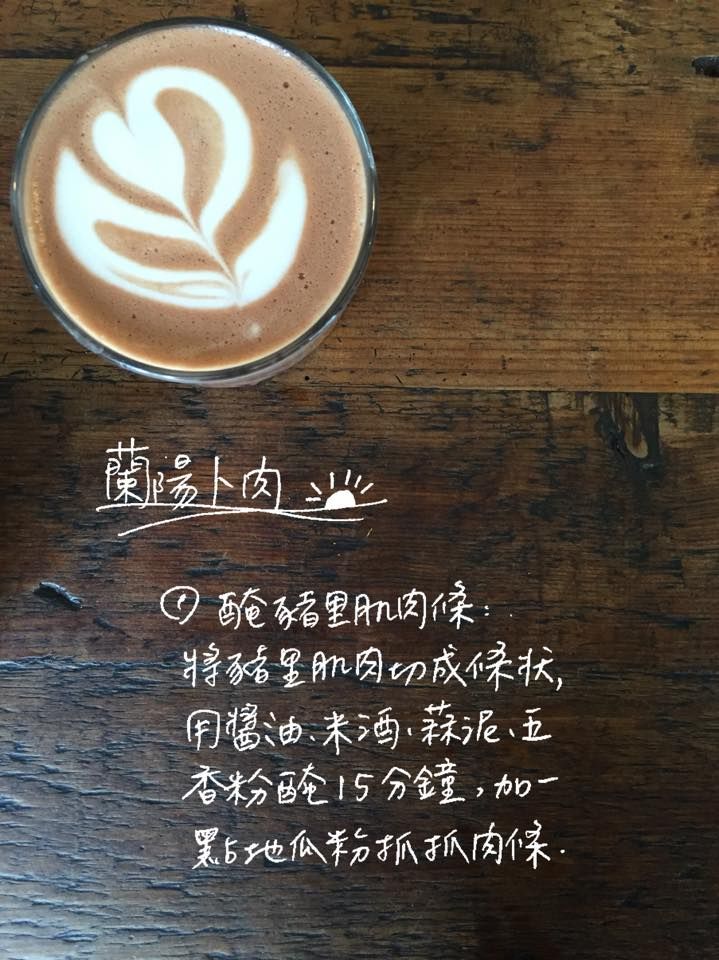 蘭陽卜肉
① 醃豬里肌肉條:
將豬里肌肉切成條狀,
用醬油、米酒、蒜泥、五
香粉醃15分鐘,加一
點地瓜粉抓抓肉條.